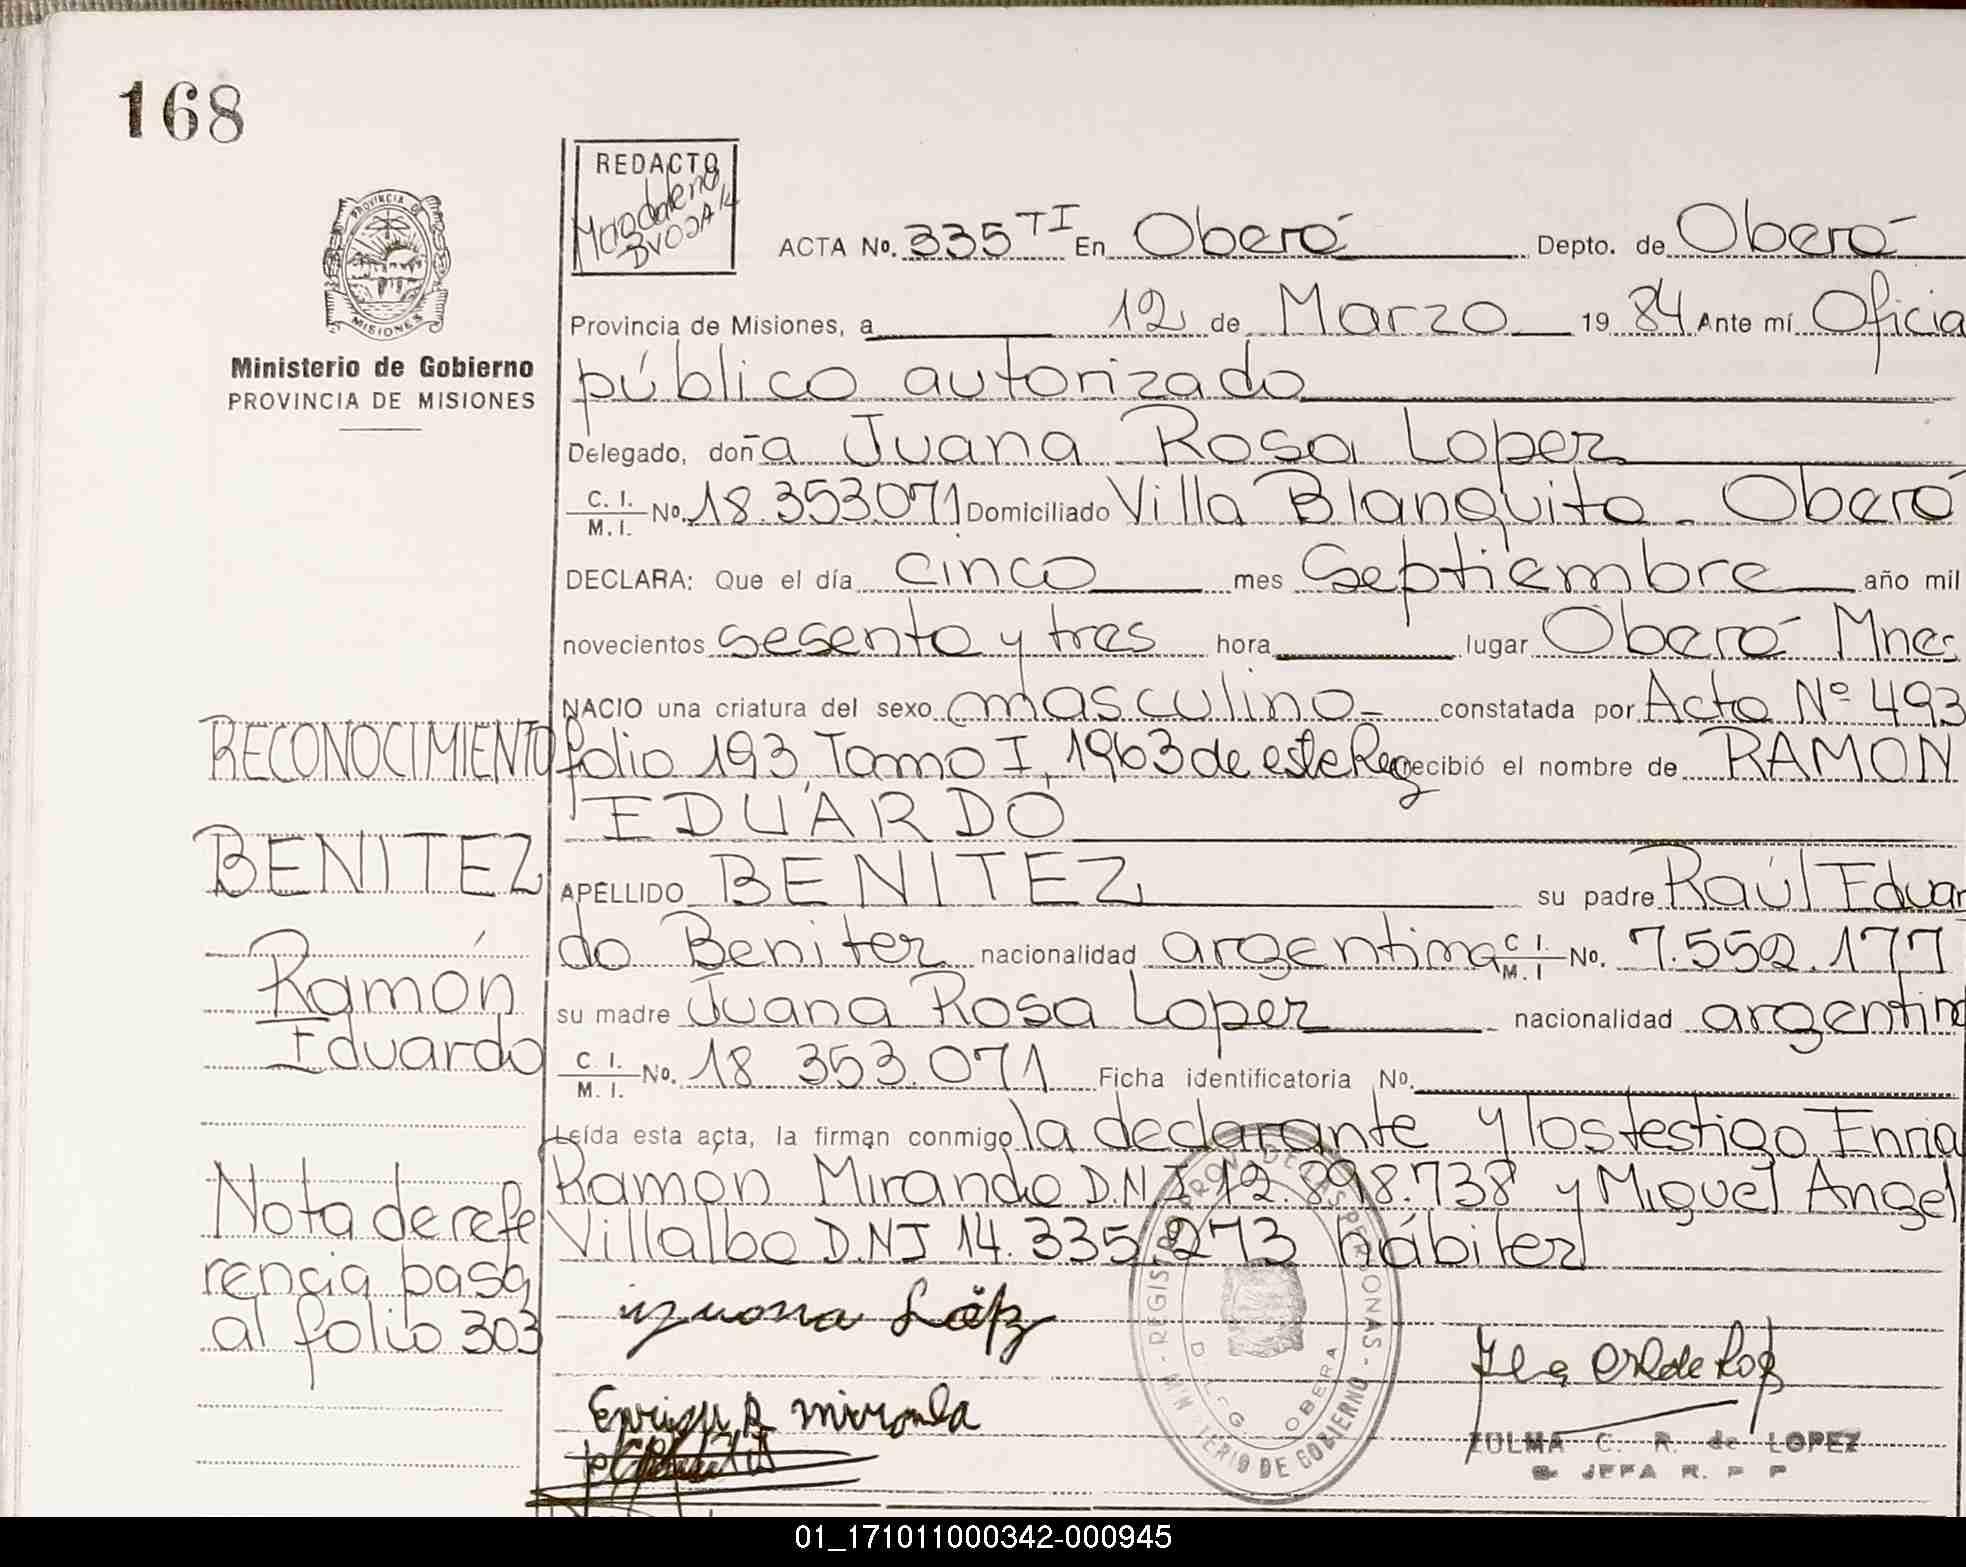 168
REDACTO
PROVINCIA D
MISIONES
Ministerio de Gobierno
PROVINCIA DE MISIONES
ACTA No. 335 TI En Oberá Depto. de Oberá
Provincia de Misiones, a 12 de Marzo 1984 Ante mí Oficia
público autorizado
Delegado, doña Juana Rosa Lopez
C. I. M. I. No. 18.353.071 Domiciliado Villa Blanquita - Oberá
DECLARA: Que el día cinco mes Septiembre año mil
novecientos sesenta y tres hora lugar Oberá Mnes
NACIO una criatura del sexo masculino - constatada por Acta Nº 493
folio 193, Tomo I, 1963 de este Reg recibió el nombre de RAMON
EDUARDO
APELLIDO BENITEZ su padre Raúl Eduar
do Benitez nacionalidad argentina C. I. M. I No. 7.552.177
su madre Juana Rosa Lopez nacionalidad argentina
C. I. M. I. No. 18 353.071 Ficha identificatoria No.
Leída esta acta, la firman conmigo la declarante y los testigo Enriq
Ramon Miranda D.N.I 12.898.738 y Miguel Angel
Villalba D.N.I 14.335.273 hábiles
RECONOCIMIENTO
BENITEZ
Ramón
Eduardo
Nota de refe
rencia pasa
al folio 303
Enrique R miranda
REGIST PROV. DE LAS PERSONAS - MINISTERIO DE GOBIERNO
DELEG OBERA
ZULMA C. R. de LOPEZ
JEFA R. P P
01_171011000342-000945